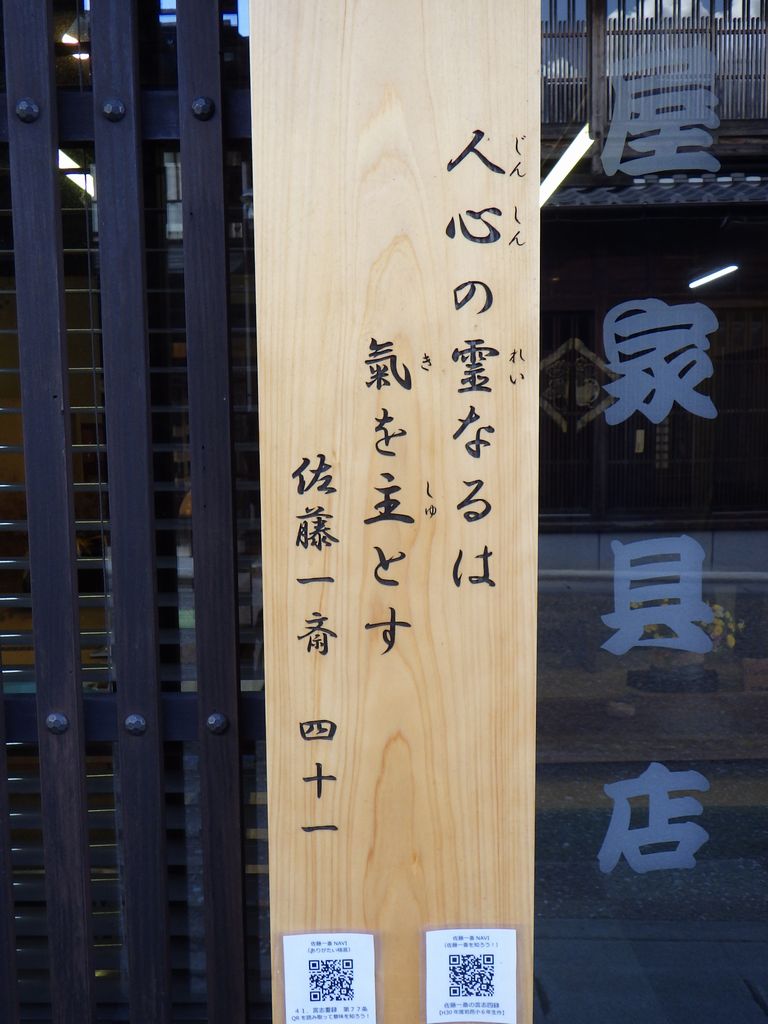 人心の霊なるは
じんしん
れい
氣を主とす
き
しゅ
佐藤一斎 四十一
屋家具店
佐藤一斎 NAVI
(ありがたい格言)
41. 言志耋録 第77条
QRを読み取って意味を知ろう!
佐藤一斎 NAVI
(佐藤一斎を知ろう!)
佐藤一斎の言志四録
【H30年度岩邑小6年生作】